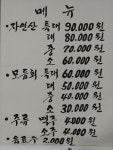 메뉴
·자연산 특대 90.000원
대 80.000원
중 70.000원
소 60.000원
·모듬회 특대 60.000원
대 50.000원
중 40.000원
소 30.000원
·주류 맥주 4.000원
소주 4.000원
·음료수 2.000원